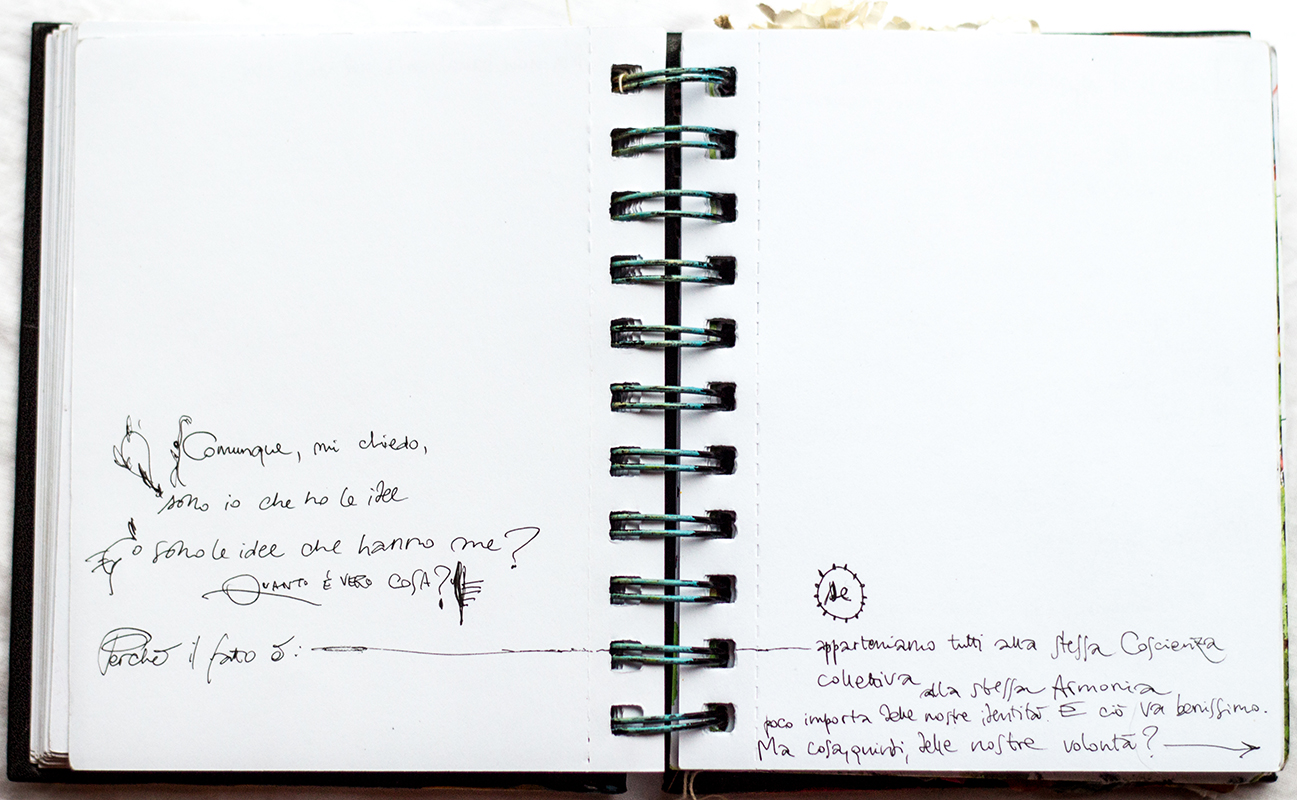 Comunque, mi chiedo,
sono io che ho le idee
o sono le idee che hanno me?
QUANTO È VERO COSA?
Perchè il fatto è:
se
apparteniamo tutti alla stessa Coscienza
collettiva alla stessa Armonia
poco importa delle nostre identità. E ciò va benissimo.
Ma cosa, quindi, delle nostre volontà?